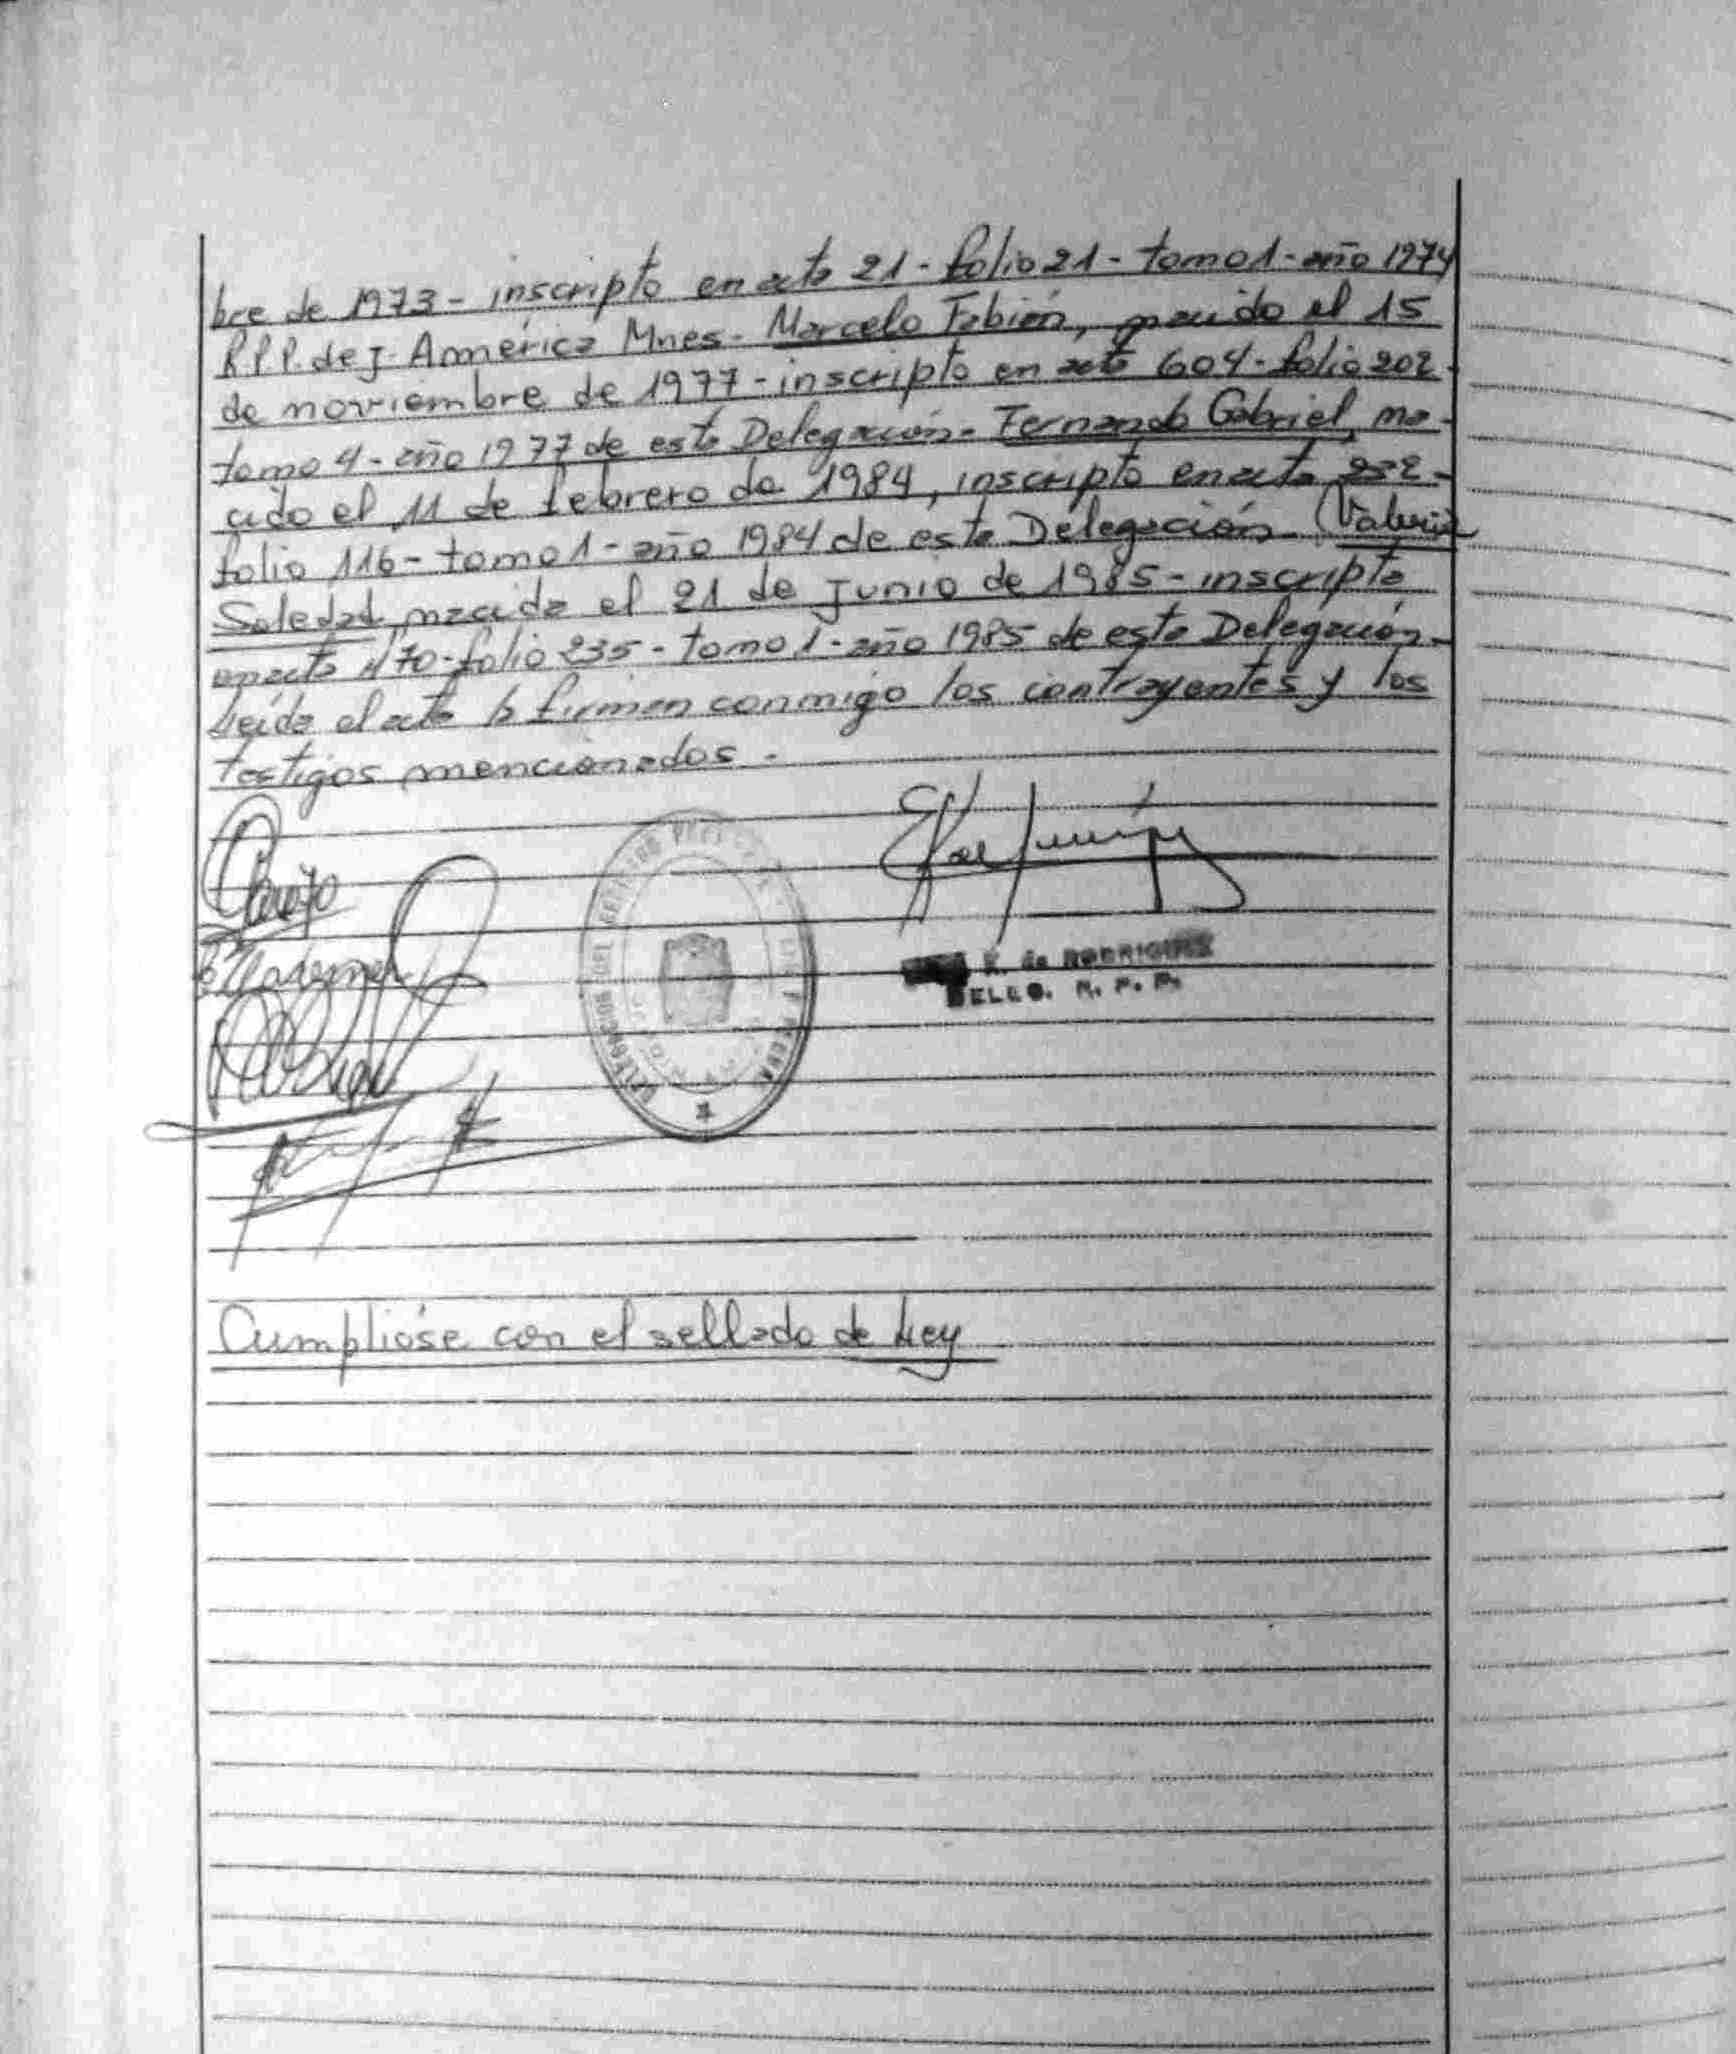 bre de 1973 - inscripto en acta 21 - folio 21 - tomo 1 - año 1974
R.P.P. de J. América Mnes - Marcelo Fabián, nacido el 15
de noviembre de 1977 - inscripto en acta 604 - folio 202
tomo 4 - año 1977 de esta Delegación - Fernando Gabriel, na-
cido el 11 de febrero de 1984, inscripto en acta 232 -
folio 116 - tomo 1 - año 1984 de esta Delegación - (Valeria
Soledad, nacida el 21 de Junio de 1985 - inscripta
en acta 470 - folio 235 - tomo 1 - año 1985 de esta Delegación -
Leída el acta la firman conmigo los contrayentes y los
testigos mencionados -
K. de RODRIGUEZ
R. P. P.
Cumplióse con el sellado de Ley